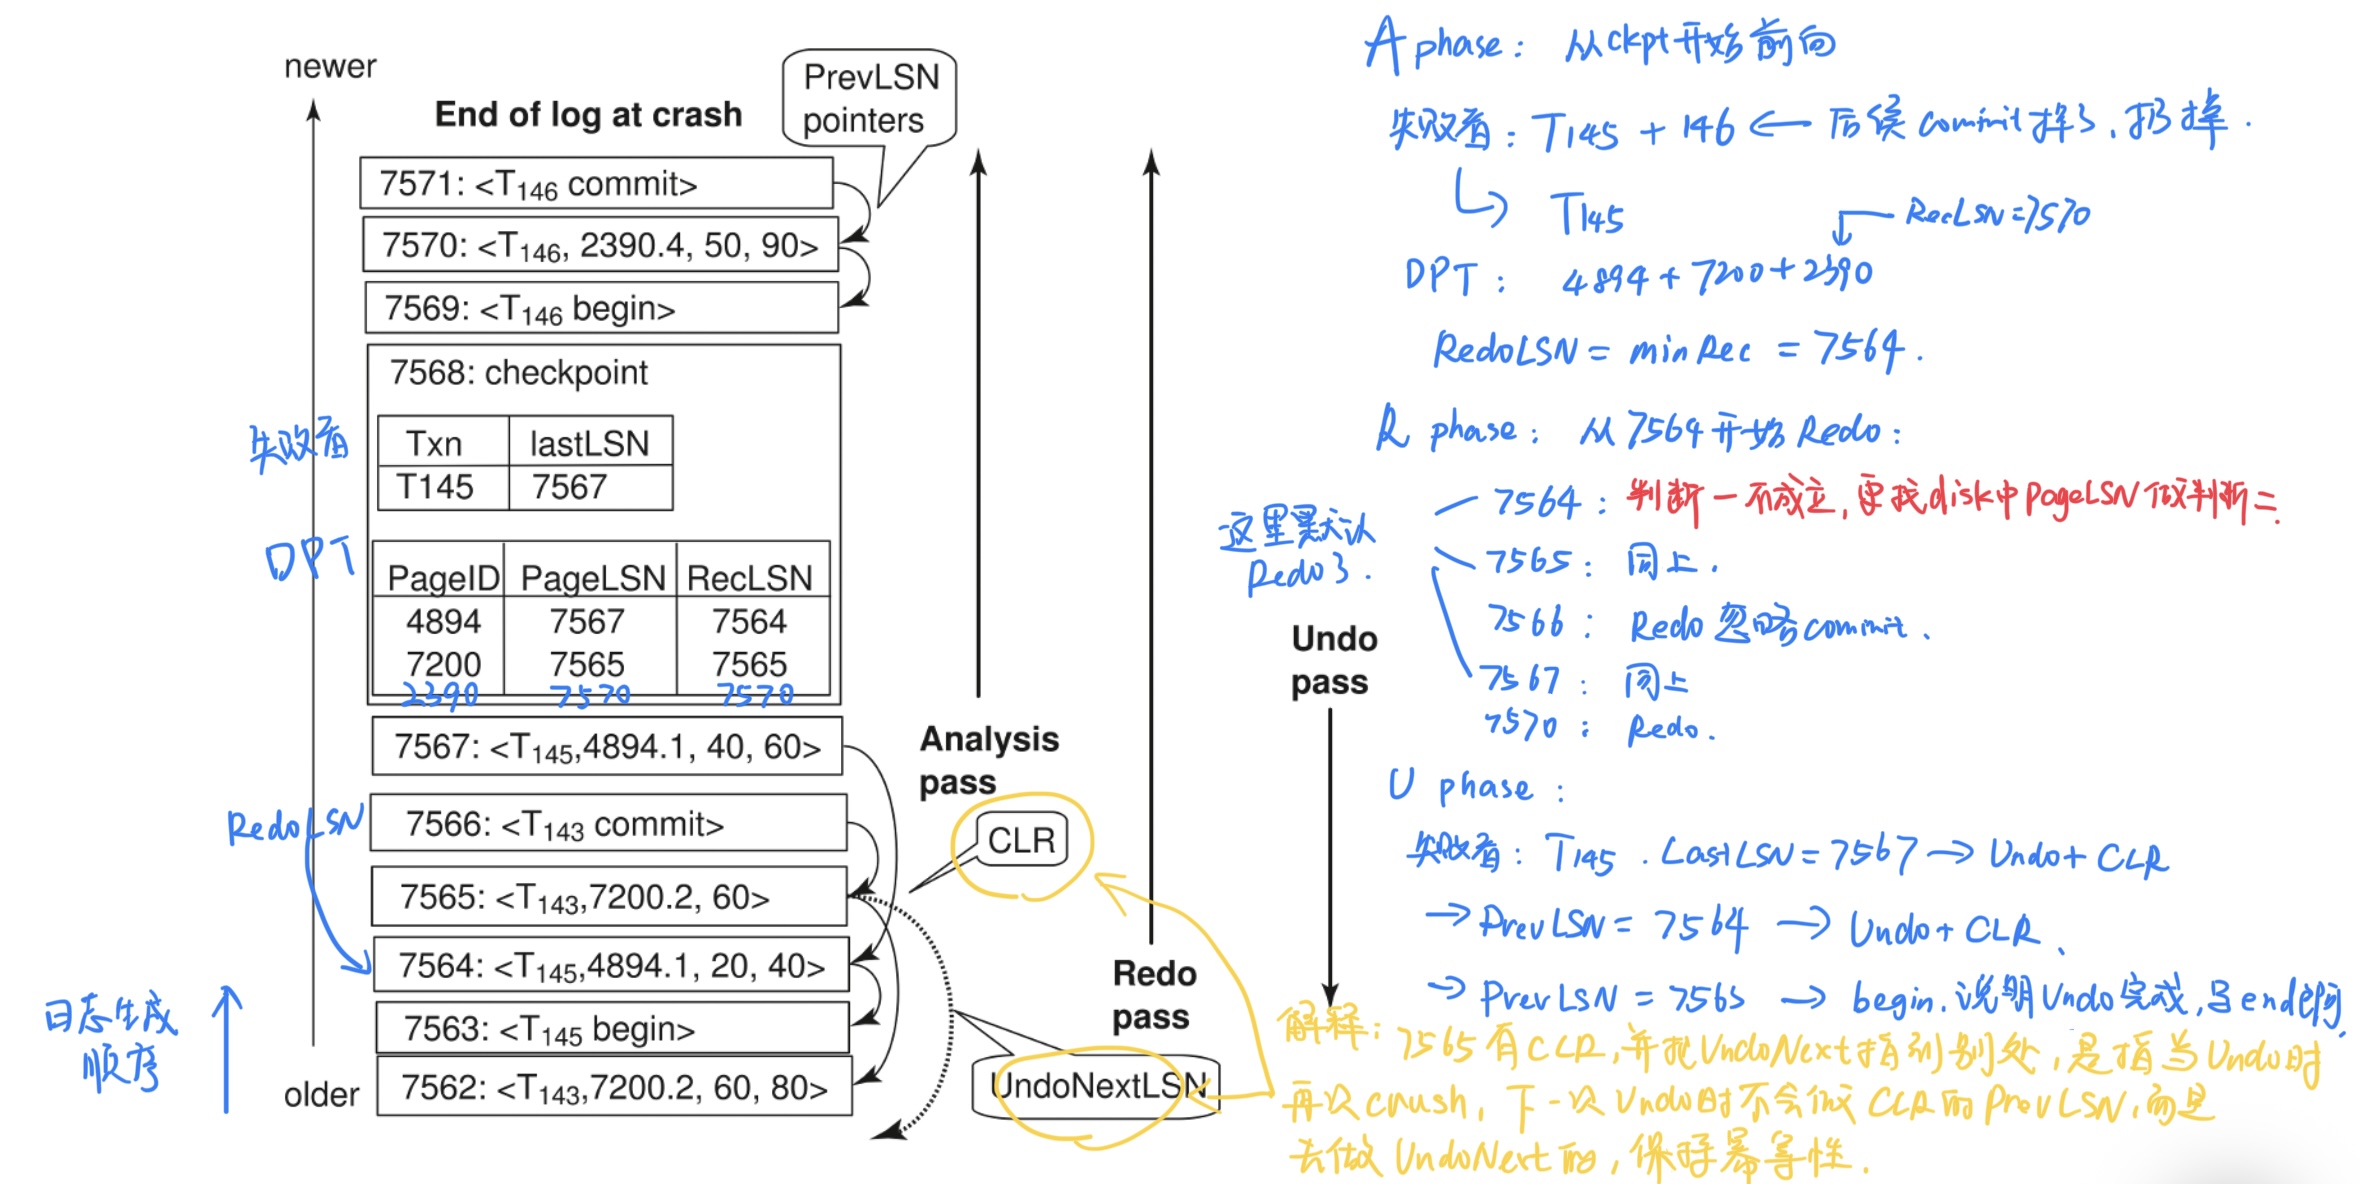 newer
End of log at crash
PrevLSN
pointers
7571: <T146 commit>
7570: <T146, 2390.4, 50, 90>
7569: <T146 begin>
7568: checkpoint
失败者
Txn lastLSN
T145 7567
DPT
PageID PageLSN RecLSN
4894 7567 7564
7200 7565 7565
2390 7570 7570
7567: <T145,4894.1, 40, 60>
RedoLSN
7566: <T143 commit>
7565: <T143,7200.2, 60>
7564: <T145,4894.1, 20, 40>
7563: <T145 begin>
7562: <T143,7200.2, 60, 80>
older
日志生成
顺序
Analysis
pass
CLR
Redo
pass
UndoNextLSN
Undo
pass
A phase: 从ckpt开始前向
失败者: T145 + 146 ← 后续commit掉了, 扔掉.
T145
RecLSN=7570
DPT: 4894 + 7200 + 2390
RedoLSN = minRec = 7564.
R phase: 从7564开始Redo:
这里默认
Redo了.
7564: 判断一不成立, 要找disk中PageLSN做判断二.
7565: 同上.
7566: Redo忽略commit.
7567: 同上
7570: Redo.
U phase:
失败者: T145. LastLSN=7567 → Undo+CLR
→ PrevLSN = 7564 → Undo+CLR.
→ PrevLSN = 7563 → begin.说明Undo完成,写end即可.
解释: 7565有CLR,并把UndoNext指到别处,是指当Undo时
再次crush, 下一次Undo时不会做CLR的PrevLSN,而是
去做UndoNext的,保持幂等性.